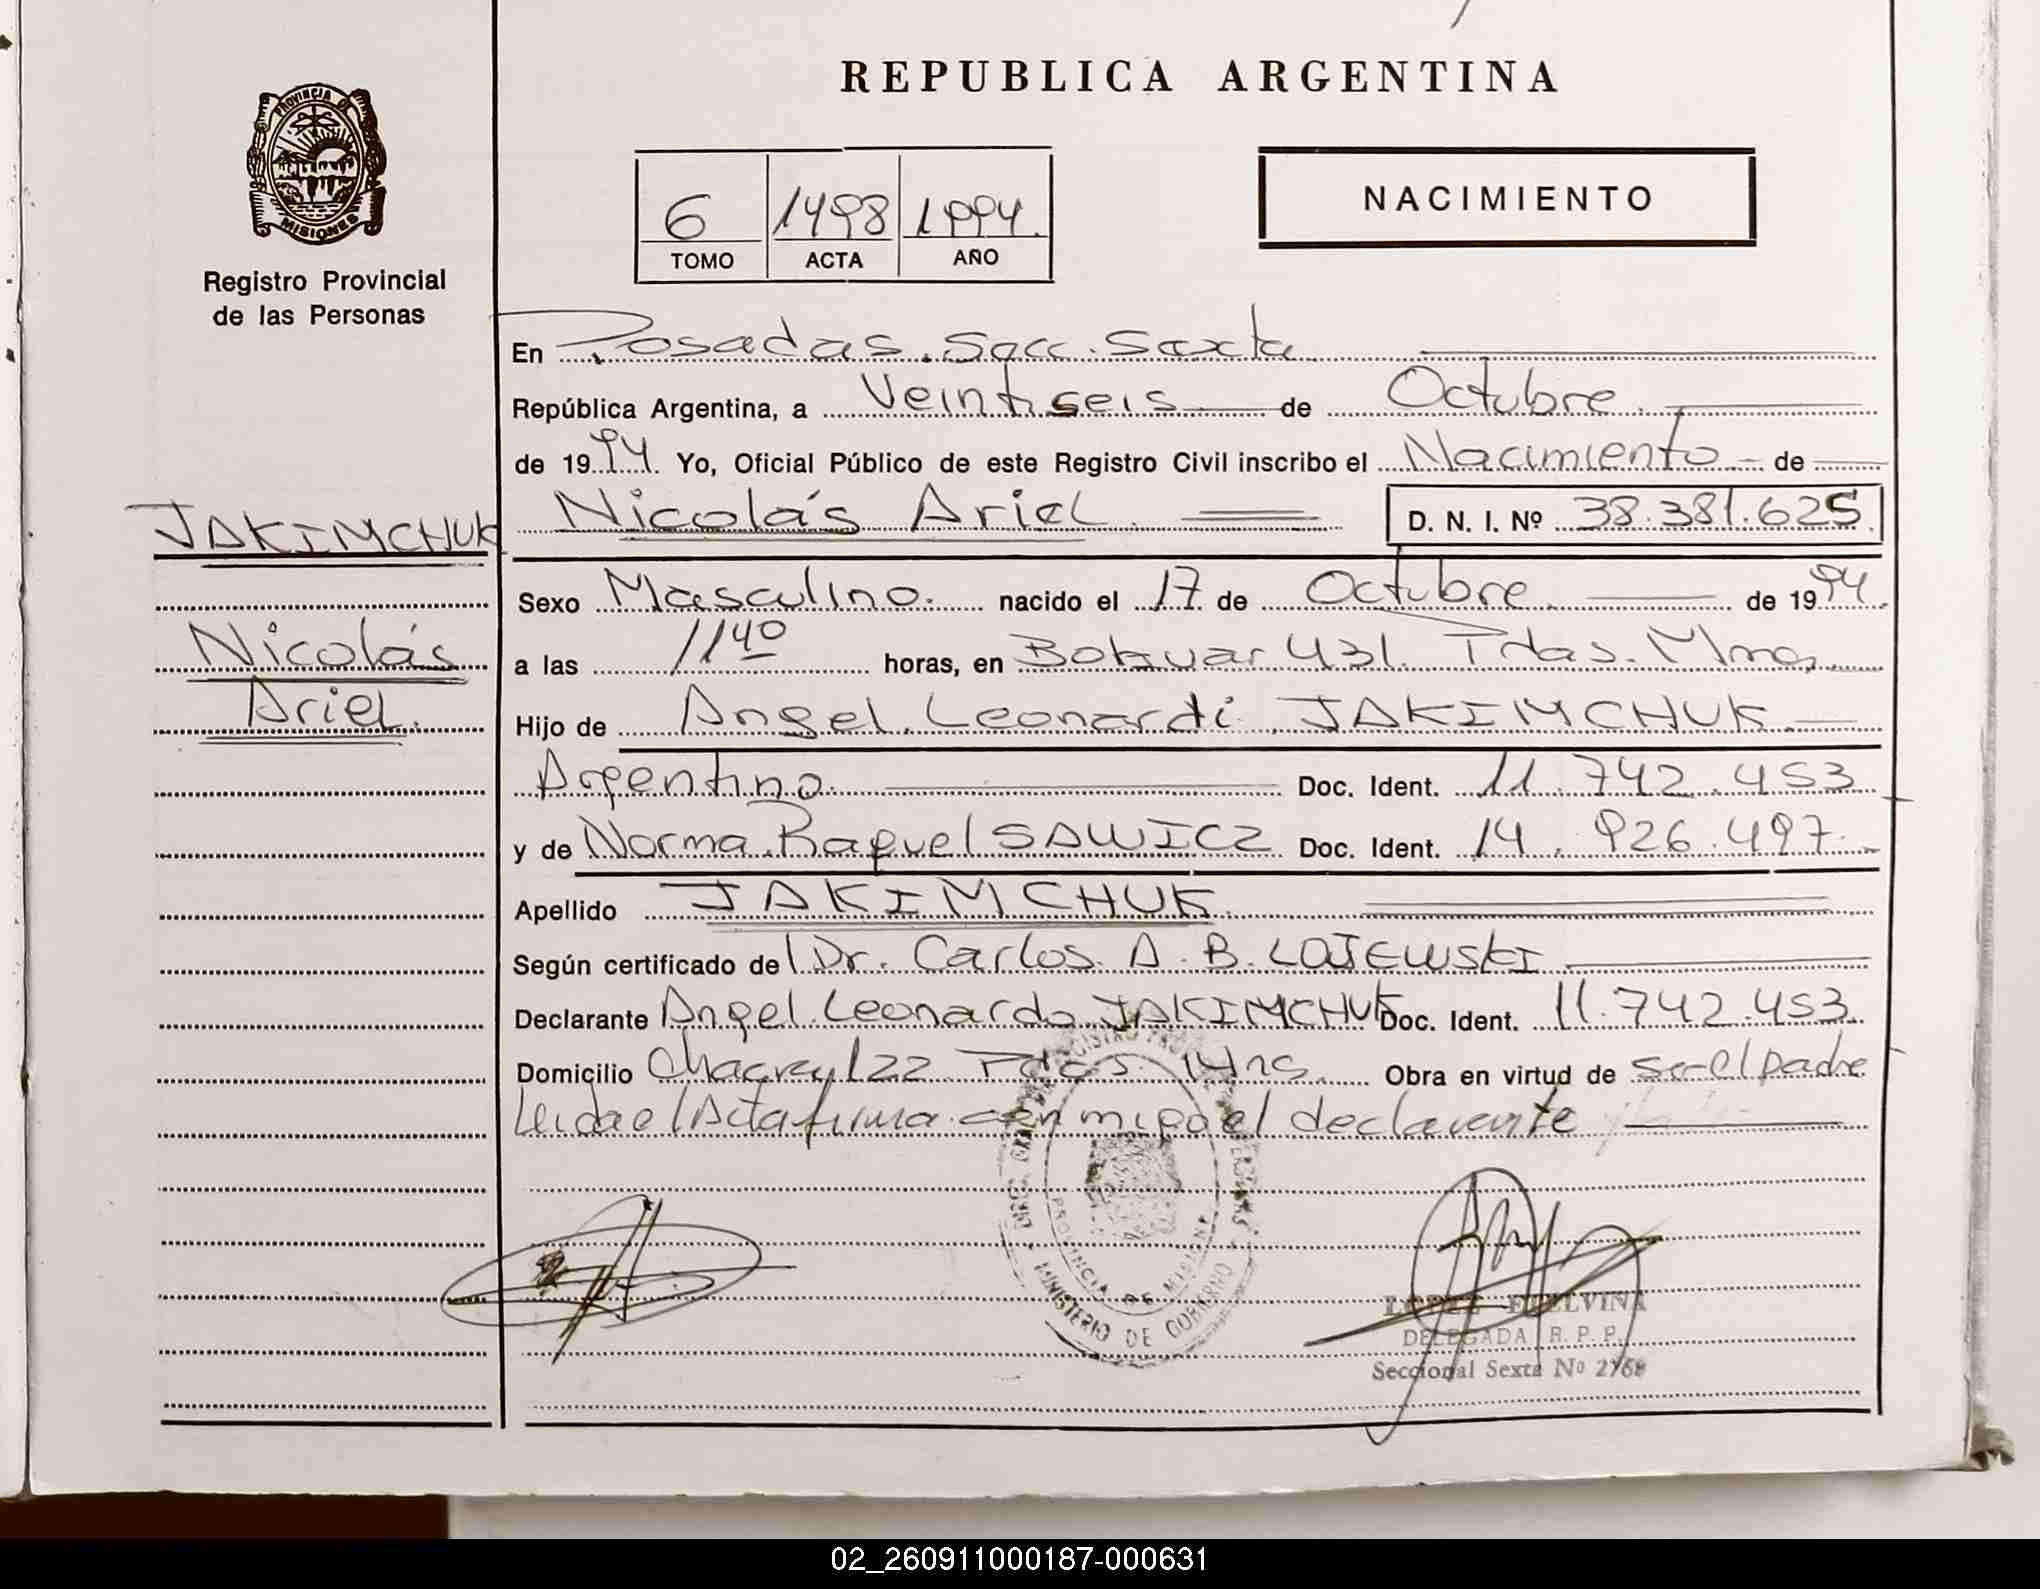 REPUBLICA ARGENTINA
PROVINCIA DE
MISIONES
Registro Provincial
de las Personas
6 1498 1994
TOMO ACTA AÑO
NACIMIENTO
En Posadas. Secc. Sexta
República Argentina, a Veintiseis de Octubre
de 1994. Yo, Oficial Público de este Registro Civil inscribo el Nacimiento de
JAKIMCHUK
Nicolás Ariel
Nicolás Ariel. D. N. I. Nº 38.381.625
Sexo Masculino. nacido el 17 de Octubre de 1994.
a las 11 40 horas, en Bolivar 431. Pdas. Mnes.
Hijo de Angel Leonardi JAKIMCHUK
Argentino. Doc. Ident. 11.742.453
y de Norma Raquel SAWICZ Doc. Ident. 14.926.497.
Apellido JAKIMCHUK
Según certificado del Dr. Carlos A. B. LOJEWSKI
Declarante Angel Leonardo JAKIMCHUK Doc. Ident. 11.742.453
Domicilio Chacra 122 Pdas. Mns. Obra en virtud de ser el padre
Leida el Acta firma con migo el declarante
MINISTERIO DE GOBIERNO
PROVINCIA DE MISIONES
LOPEZ ETELVINA
DELEGADA R. P. P.
Seccional Sexta Nº 2768
02_260911000187-000631